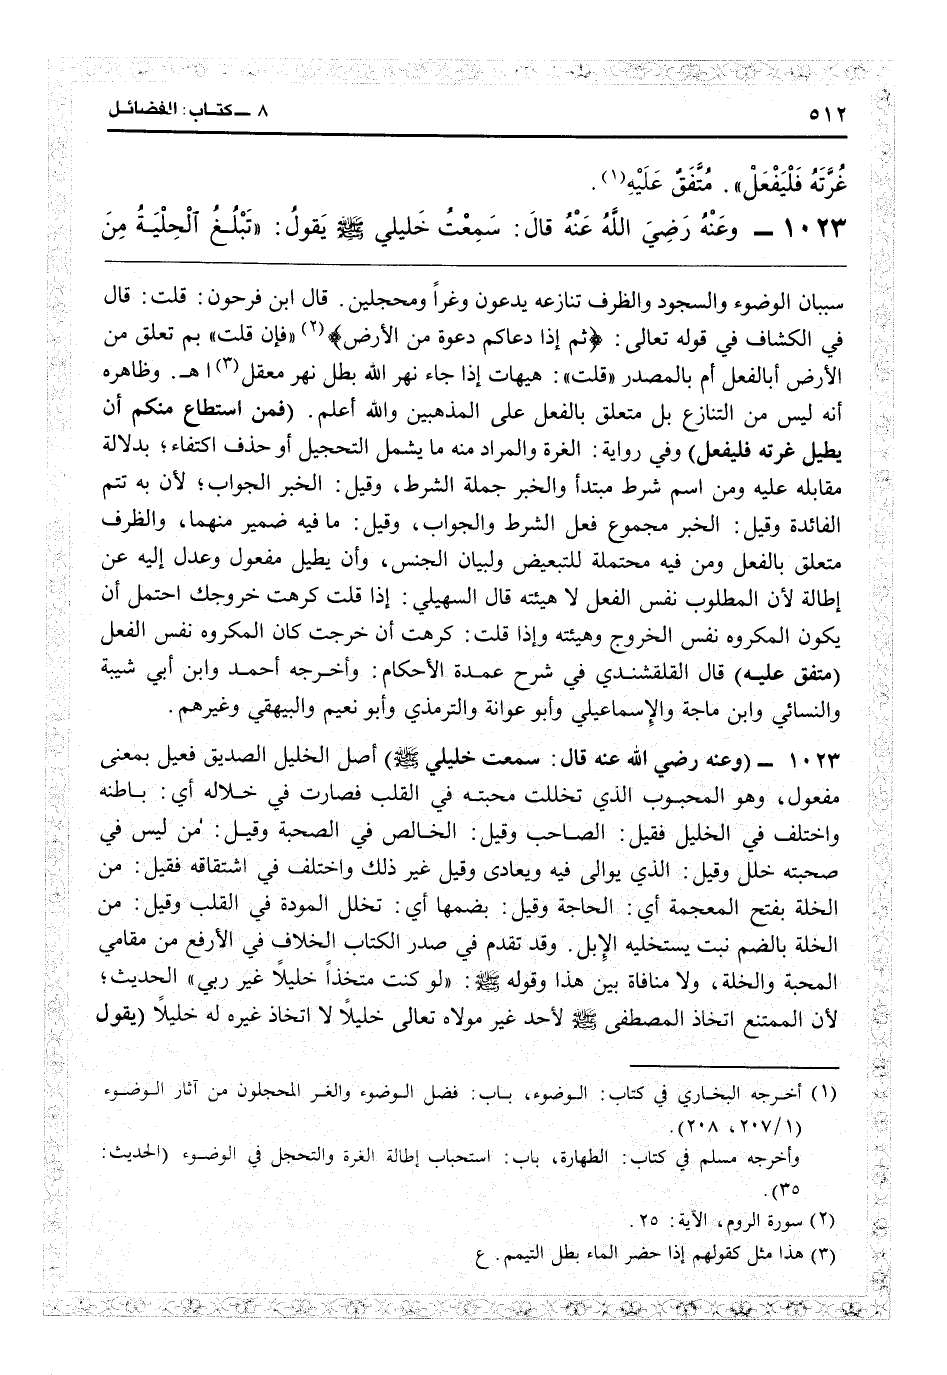 ٥١٢
٨ ــ كتاب: الفضائل
غُرَّتَهُ فَلْيَفْعَلْ». مُتَّفَقٌ عَلَيْهِ(١).
١٠٢٣ ــ وعَنْهُ رَضِيَ اللَّهُ عَنْهُ قالَ: سَمِعْتُ خَليلي ﷺ يَقولُ: «تَبْلُغُ ٱلْحِلْيَةُ مِنَ
سببان الوضوء والسجود والظرف تنازعه يدعون وغراً ومحجلين. قال ابن فرحون: قلت: قال
في الكشاف في قوله تعالى: ﴿ثم إذا دعاكم دعوة من الأرض﴾(٢) «فإن قلت» بم تعلق من
الأرض أبالفعل أم بالمصدر «قلت»: هيهات إذا جاء نهر الله بطل نهر معقل(٣) ا هـ. وظاهره
أنه ليس من التنازع بل متعلق بالفعل على المذهبين والله أعلم. (فمن استطاع منكم أن
يطيل غرته فليفعل) وفي رواية: الغرة والمراد منه ما يشمل التحجيل أو حذف اكتفاء؛ بدلالة
مقابله عليه ومن اسم شرط مبتدأ والخبر جملة الشرط، وقيل: الخبر الجواب؛ لأن به تتم
الفائدة وقيل: الخبر مجموع فعل الشرط والجواب، وقيل: ما فيه ضمير منهما، والظرف
متعلق بالفعل ومن فيه محتملة للتبعيض ولبيان الجنس، وأن يطيل مفعول وعدل إليه عن
إطالة لأن المطلوب نفس الفعل لا هيئته قال السهيلي: إذا قلت كرهت خروجك احتمل أن
يكون المكروه نفس الخروج وهيئته وإذا قلت: كرهت أن خرجت كان المكروه نفس الفعل
(متفق عليه) قال القلقشندي في شرح عمدة الأحكام: وأخرجه أحمد وابن أبي شيبة
والنسائي وابن ماجة والإسماعيلي وأبو عوانة والترمذي وأبو نعيم والبيهقي وغيرهم.
١٠٢٣ ــ (وعنه رضي الله عنه قال: سمعت خليلي ﷺ) أصل الخليل الصديق فعيل بمعنى
مفعول، وهو المحبوب الذي تخللت محبته في القلب فصارت في خلاله أي: باطنه
واختلف في الخليل فقيل: الصاحب وقيل: الخالص في الصحبة وقيل: من ليس في
صحبته خلل وقيل: الذي يوالى فيه ويعادى وقيل غير ذلك واختلف في اشتقاقه فقيل: من
الخلة بفتح المعجمة أي: الحاجة وقيل: بضمها أي: تخلل المودة في القلب وقيل: من
الخلة بالضم نبت يستخليه الإبل. وقد تقدم في صدر الكتاب الخلاف في الأرفع من مقامي
المحبة والخلة، ولا منافاة بين هذا وقوله ﷺ: «لو كنت متخذاً خليلًا غير ربي» الحديث؛
لأن الممتنع اتخاذ المصطفى ﷺ لأحد غير مولاه تعالى خليلًا لا اتخاذ غيره له خليلًا (يقول
(١) أخرجه البخاري في كتاب: الوضوء، باب: فضل الوضوء والغر المحجلون من آثار الوضوء
(١/ ٢٠٧، ٢٠٨).
وأخرجه مسلم في كتاب: الطهارة، باب: استحباب إطالة الغرة والتحجل في الوضوء (الحديث:
٣٥).
(٢) سورة الروم، الآية: ٢٥.
(٣) هذا مثل كقولهم إذا حضر الماء بطل التيمم. ع